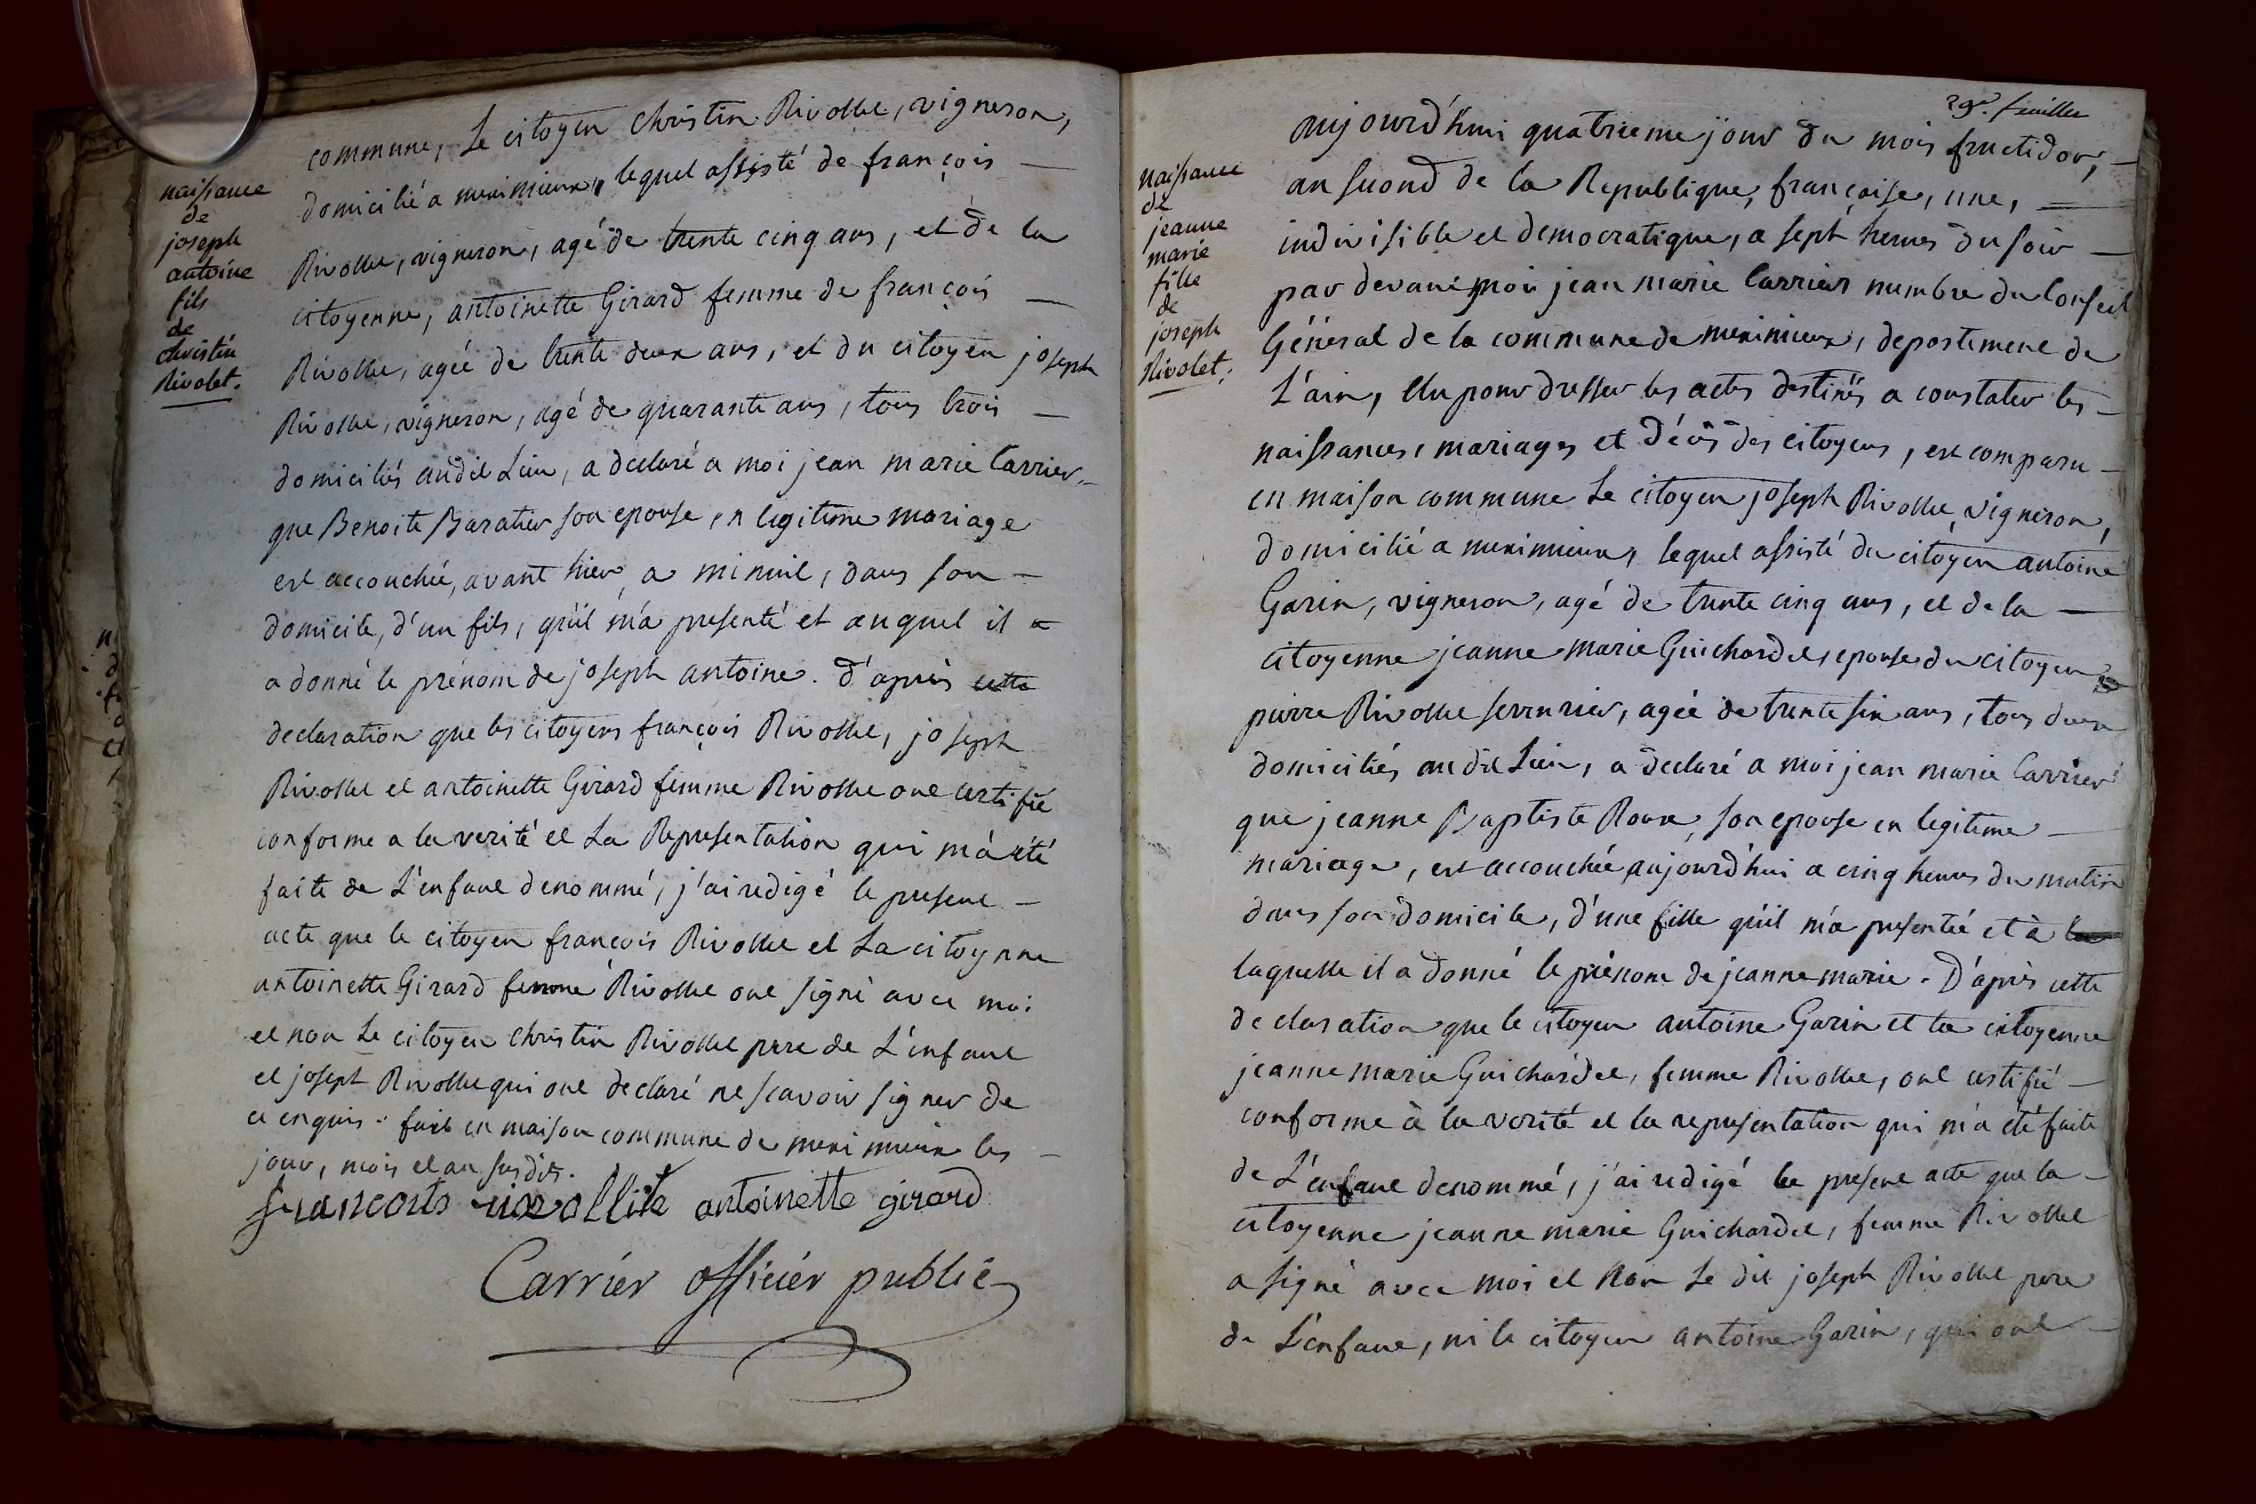 commune, Le citoyen christin Rivollet, vigneron,
naissance
de
joseph
antoine
fils
de
christin
Rivolet.
domicilié a meximieux, lequel assisté de françois —
Rivollet, vigneron, agé de trente cinq ans, et de la
citoyenne, antoinette Girard femme de françois —
Rivollet, agée de trente deux ans, et du citoyen joseph
Rivollet, vigneron, agé de quarante ans, tous trois —
domiciliés audit Lieu, a declaré a moi jean marie Carrier
que Benoite Baratier son epouse en legitime mariage
est accouchée, avant hier a minuit, dans son —
domicile, d'un fils, qu'il m'a presenté et auquel il a
a donné le prénom de joseph antoine. d'après cette
declaration que les citoyens françois Rivollet, joseph
Rivollet et antoinette Girard femme Rivollet ont certifié
conforme a la verité et La Representation qui m'a été
faite de L'enfant denommé, j'ai redigé le present —
acte que le citoyen françois Rivollet et La citoyenne
antoinette Girard femme Rivollet ont signé avec moi
et non Le citoyen christin Rivollet pere de L'enfant
et joseph Rivollet qui ont declaré ne scavoir signer de
ce enquis. fait en maison commune de meximieux les —
jour, mois et an susdits.
francois rivollite antoinette girard
Carriér officiér public
29e. feuillet
aujourd'hui quatrieme jour du mois fructidor, —
naissance
de
jeanne
marie
fille
de
joseph
Rivolet.
an second de la Republique, française, une, —
indivisible et democratique, a sept heures du soir —
par devant moi jean marie Carrier membre du Conseil
Général de la commune de meximieux, departement de
L'ain, Elu pour dresser les actes destinés a constater les —
naissances, mariages et décès des citoyens, est comparu —
en maison commune Le citoyen joseph Rivollet, vigneron,
domicilié a meximieux, lequel assisté du citoyen antoine
Garin, vigneron, agé de trente cinq ans, et de la —
citoyenne jeanne marie Guichardet, epouse du citoyen
pierre Rivollet serrurier, agée de trente six ans, tous deux
domiciliés audit Lieu, a declaré a moi jean marie Carrier
que jeanne Baptiste Roux, son epouse en legitime —
mariage, est accouchée aujourd'hui a cinq heures du matin
dans son domicile, d'une fille qu'il m'a presentée et à la
laquelle il a donné le prénom de jeanne marie. D'après cette
declaration que le citoyen antoine Garin et la citoyenne
jeanne marie Guichardet, femme Rivollet, ont certifié —
conforme à la verité et la representation qui m'a été faite
de L'enfant denommé, j'ai redigé le present acte que la —
citoyenne jeanne marie Guichardet, femme Rivollet
a signé avec moi et Non Le dit joseph Rivollet pere
de L'enfant, ni le citoyen antoine Garin, qui ont —